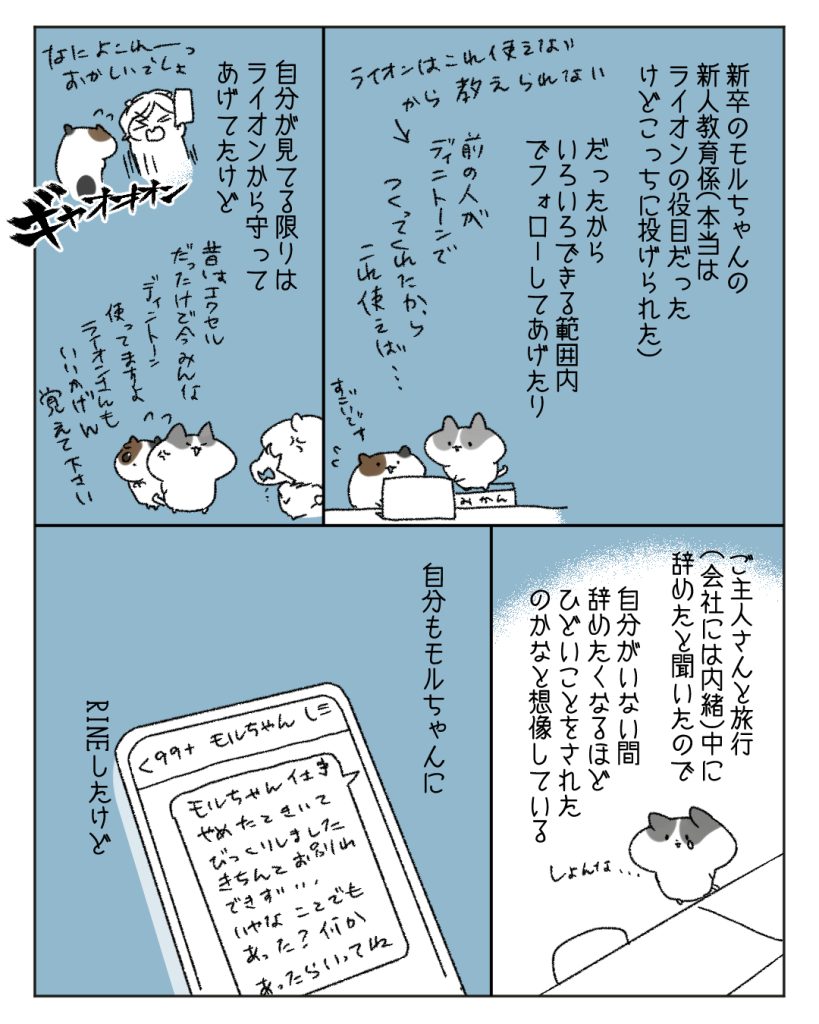 新卒のモルちゃんの
新人教育係(本当は
ライオンの役目だった
けどこっちに投げられた)
だったから
いろいろできる範囲内
でフォローしてあげたり
ライオンはこれ使えない
から教えられない
前の人が
ディントーンで
つくってくれたから
これ使えば・・・
すごいです
みかん
自分が見てる限りは
ライオンから守って
あげてたけど
なによこれーっ
おかしいでしょ
ギャオオオン
昔はエクセル
だったけど今みんな
ディントーン
使ってますよ
ライオンさんも
いいかげん
覚えて下さい
ご主人さんと旅行
(会社には内緒)中に
辞めたと聞いたので
自分がいない間
辞めたくなるほど
ひどいことをされた
のかなと想像している
しょんな・・・
自分もモルちゃんに
RINEしたけど
<99+ モルちゃん
モルちゃん仕事
やめたときいて
びっくりしました
きちんとお別れ
できず・・・
いやなことでも
あった?何か
あったらいってね